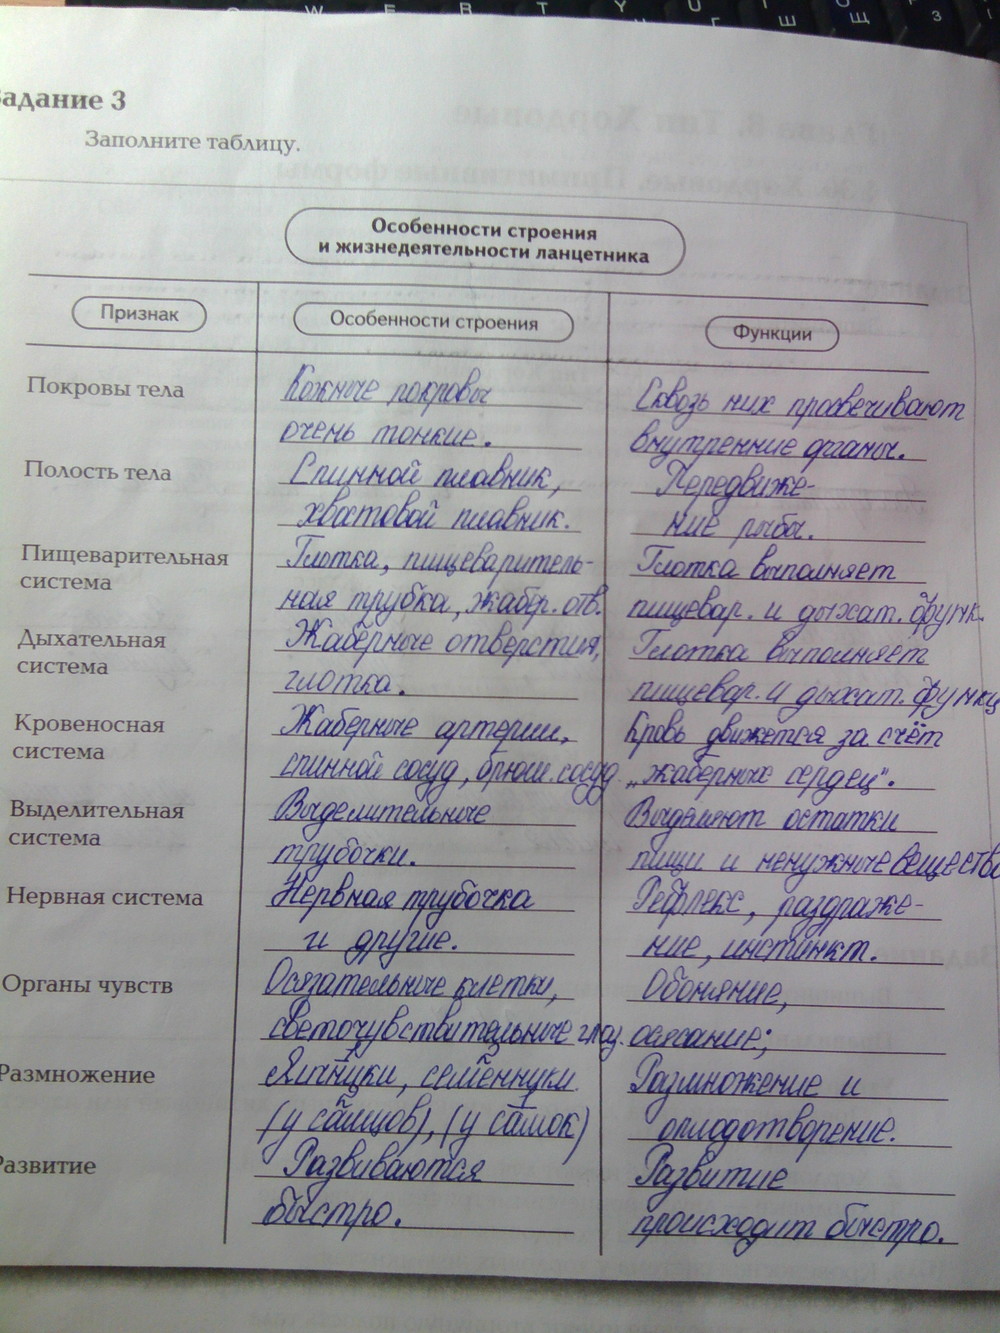 W E R T Y U
Г Ш Щ З
адание 3
Заполните таблицу.
Особенности строения
и жизнедеятельности ланцетника
Признак Особенности строения Функции
Покровы тела Кожные покровы Сквозь них просвечивают
очень тонкие. внутренние органы.
Полость тела Спинной плавник, Передвиже-
хвостовой плавник. ние рыбы.
Пищеварительная Глотка, пищеваритель- Глотка выполняет
система ная трубка, жабер. отв. пищевар. и дыхат. функ.
Дыхательная Жаберные отверстия, Глотка выполняет
система глотка. пищевар. и дыхат. функц
Кровеносная Жаберные артерии, Кровь движется за счёт
система спинной сосуд, брюш. сосуд „жаберных сердец".
Выделительная Выделительные Выделяют остатки
система трубочки. пищи и ненужные вещества
Нервная система Нервная трубочка Рефлекс, раздраже-
и другие. ние, инстинкт.
Органы чувств Осязательные клетки, Обоняние,
светочувствительные глаз. осязание;
Размножение Яичники, семенники Размножение и
(у самцов), (у самок) оплодотворение.
Развитие Развиваются Развитие
быстро. происходит быстро.